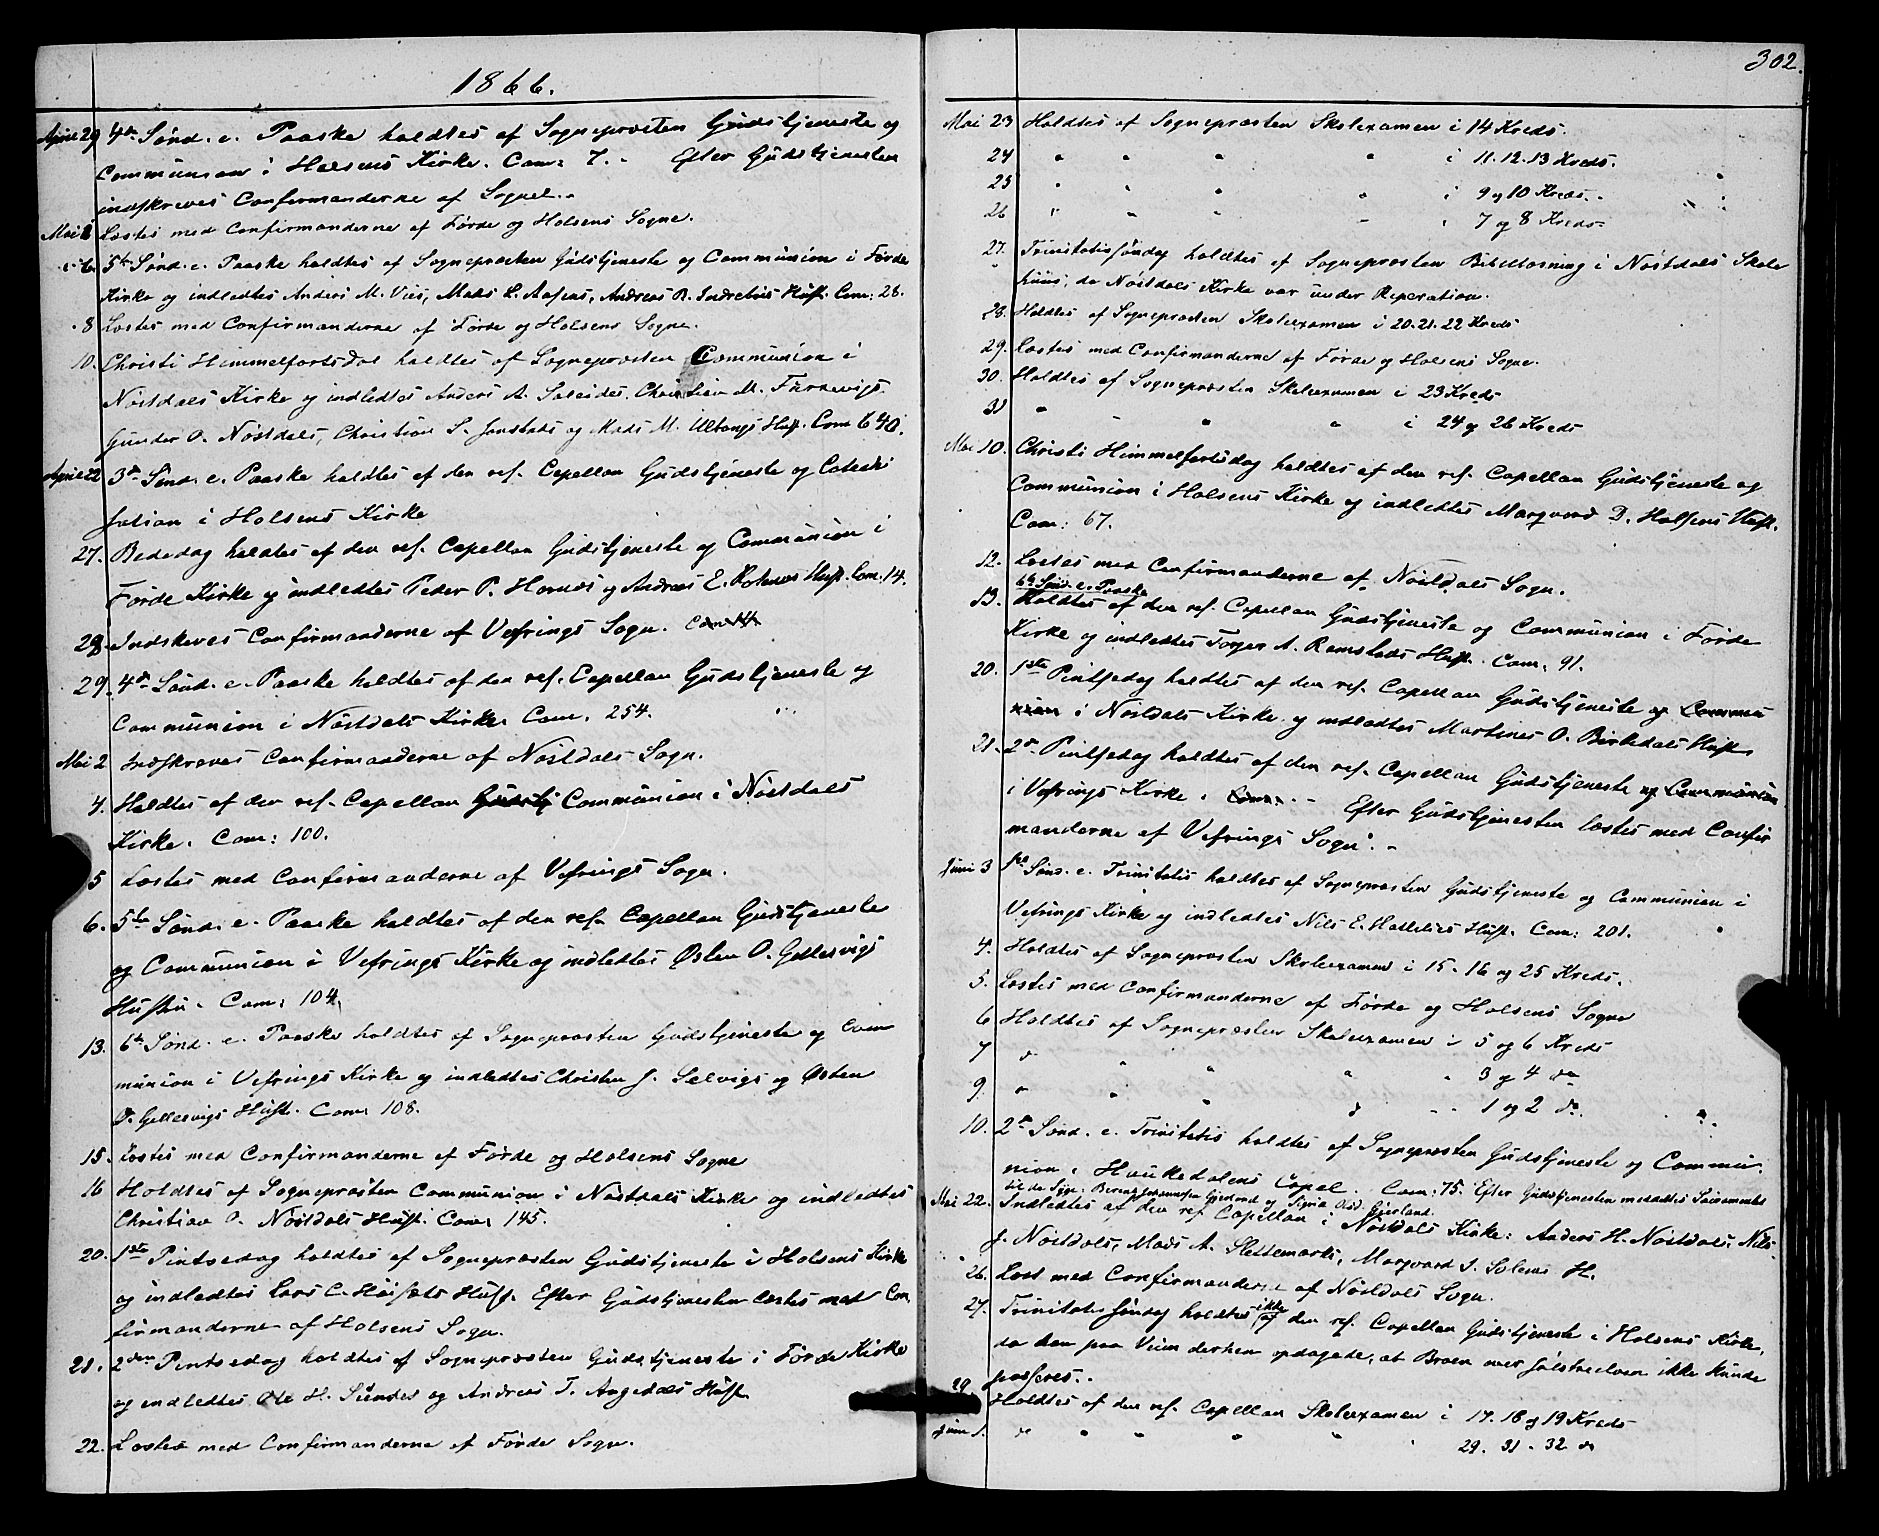 1866.
April 29 4de Sønd. e. Paaske holdtes af Sognepræsten Gudstjeneste og
Communion i Holsens Kirke. Com: 7. - Efter Gudstjenesten
indskreves Confirmanderne af Sognet. -
Mai 1 Læstes med Confirmanderne af Førde og Holsens Sogne.
" 6. 5te Sønd. e. Paaske holdtes af Sognepræsten Gudstjeneste og Communion i Førde
Kirke og indledtes Anders M. Vies, Mads L. Aasens, Andreas R. Indrebøs Hust. Com: 28.
" 8 Læstes med Confirmanderne af Førde og Holsens Sogne.
10. Christi Himmelfartsdag holdtes af Sognepræsten Communion i
Nøstdals Kirke og indledtes Anders A. Soleides, Christian M. Furrevigs
Gunder O. Nøstdals, Christian S. Jonstads og Mads M. Ultangs Hust. Com 640.
April 22 3die Sønd. e. Paaske holdtes af den res. Capellan Gudstjeneste og Catechi
sation i Holsens Kirke
27. Bededag holdtes af den res. Capellan Gudstjeneste og Communion i
Førde Kirke og indledtes Peder P. Hornæs og Andreas E. Hust. Com. 14.
28. Indskreves Confirmanderne af Vefrings Sogn. Com 14
29. 4de Sønd. e. Paaske holdtes af den res. Capellan Gudstjeneste og
Communion i Nøstdals Kirke Com. 254.
Mai 2 Indskreves Confirmanderne af Nøstdals Sogn.
4. Holdtes af den res. Capellan Gudstj Communion i Nøstdals
Kirke. Com: 100.
5 Læstes med Confirmanderne af Vefrings Sogn.
6. 5te Sønd. e. Paaske holdtes af den res. Capellan Gudstjeneste
og Communion i Vefrings Kirke og indledtes Østen O. Gellesvigs
Hustru. Com: 104.
13. 6te Sønd. e. Paaske holdtes af Sognepræsten Gudstjeneste og Com
munion i Vefrings Kirke og indledtes Christen J. Selvigs og Østen
O. Gellesvigs Hust. Com. 108.
15. Læstes med Confirmanderne af Førde og Holsens Sogne
16 Holdtes af Sognepræsten Communion i Nøstdals Kirke og indledtes
Christian O. Nøstdals Hust. Com. 145.
20. 1ste Pintsedag holdtes af Sognepræsten Gudstjeneste i Holsens Kirke
og indledtes Lars C. Høisæts Hust. Efter Gudstjenesten læstes med Con
firmanderne af Holsens Sogn.
21. 2den Pintsedag holdtes af Sognepræsten Gudstjeneste i Førde Kirke
og indledtes Ole H. Sundes og Andreas T. Angedals Hust.
22. Læstes med Confirmanderne af Førde Sogn.
302.
Mai 23 Holdtes af Sognepræsten Skoleexamen i 14 Kreds.
24 " " " " i 11. 12. 13 Kreds.
25 " " " " i 9 og 10 Kreds. -
26 " " " " " 7 og 8 Kreds
27. Trinitatissøndag holdtes af Sognepræsten Bibellæsning i Nøstdals Skole
huus, da Nøstdals Kirke var under Reparation.
28. Holdtes af Sognepræsten Skoleexamen i 20. 21. 22 Kreds
29. Læstes med Confirmanderne af Førde og Holsens Sogne.
30. Holdtes af Sognepræsten Skoleexamen i 23 Kreds
31 " " " " i 24 og 26 Kreds
Mai 10. Christi Himmelfartsdag holdtes af den res. Capellan Gudstjeneste og
Communion i Holsens Kirke og indledtes Marqvard D. Holsens Hust.
Com: 67.
12. Læstes med Confirmanderne af Nøstdals Sogn.
6te Sønd. e. Paaske
13. Holdtes af den res. Capellan Gudstjeneste og Communion i Førde
Kirke og indledtes Torger A. Ramstads Hust. Com. 91.
20. 1ste Pintsedag holdtes af den res. Capellan Gudstjeneste og Commu
nion i Nøstdals Kirke og indledtes Martines O. Birkedals Hust
21. 2den Pintsedag holdtes af den res. Capellan Gudstjeneste og Communion
i Vefrings Kirke. Com: - Efter Gudstjenesten læstes med Confir
manderne af Vefrings Sogn. -
Juni 3 1ste Sønd. e. Trinitatis holdtes af Sognepræsten Gudstjeneste og Communion i
Vefrings Kirke og indledtes Nils E. Hatleliers Hust. Com: 201.
4. Holdtes af Sognepræsten Skoleexamen i 15 - 16 og 25 Kreds.
5. Læstes med Confirmanderne af Førde og Holsens Sogne
6 Holdtes af Sognepræsten Skoleexamen i 5 og 6 Kreds
7 " " " " " 3 og 4 do
9. " " " " " 1 og 2 do.
10. 2den Sønd. e. Trinitatis holdtes af Sognepræsten Gudstjeneste og Commu
nion i Haukedalens Capel. Com: 75. Efter Gudstjenesten meddeltes Sacramentet
til de Syge: Gjerland.
Mai 22. Indledtes af den res. Capellan i Nøstdals Kirke: Anders H. Nøstdals, Nils
J. Nøstdals, Mads A. Slettemarks, Marqvard S. Solems H.
26. Læst med Confirmanderne af Nøstdals Sogn.
27. Trinitatissøndag holdtes ikke af den res. Capellan Gudstjeneste i Holsens Kirke,
da han paa Veien derhen opdagede, at Broen over Jølstraelven ikke kunde
passeres. -
29. Holdtes af den res. Capellan Skoleexamen i 17. 18 og 19 Kreds
Juni 1. do " " " " " 29. 31 - 32 do